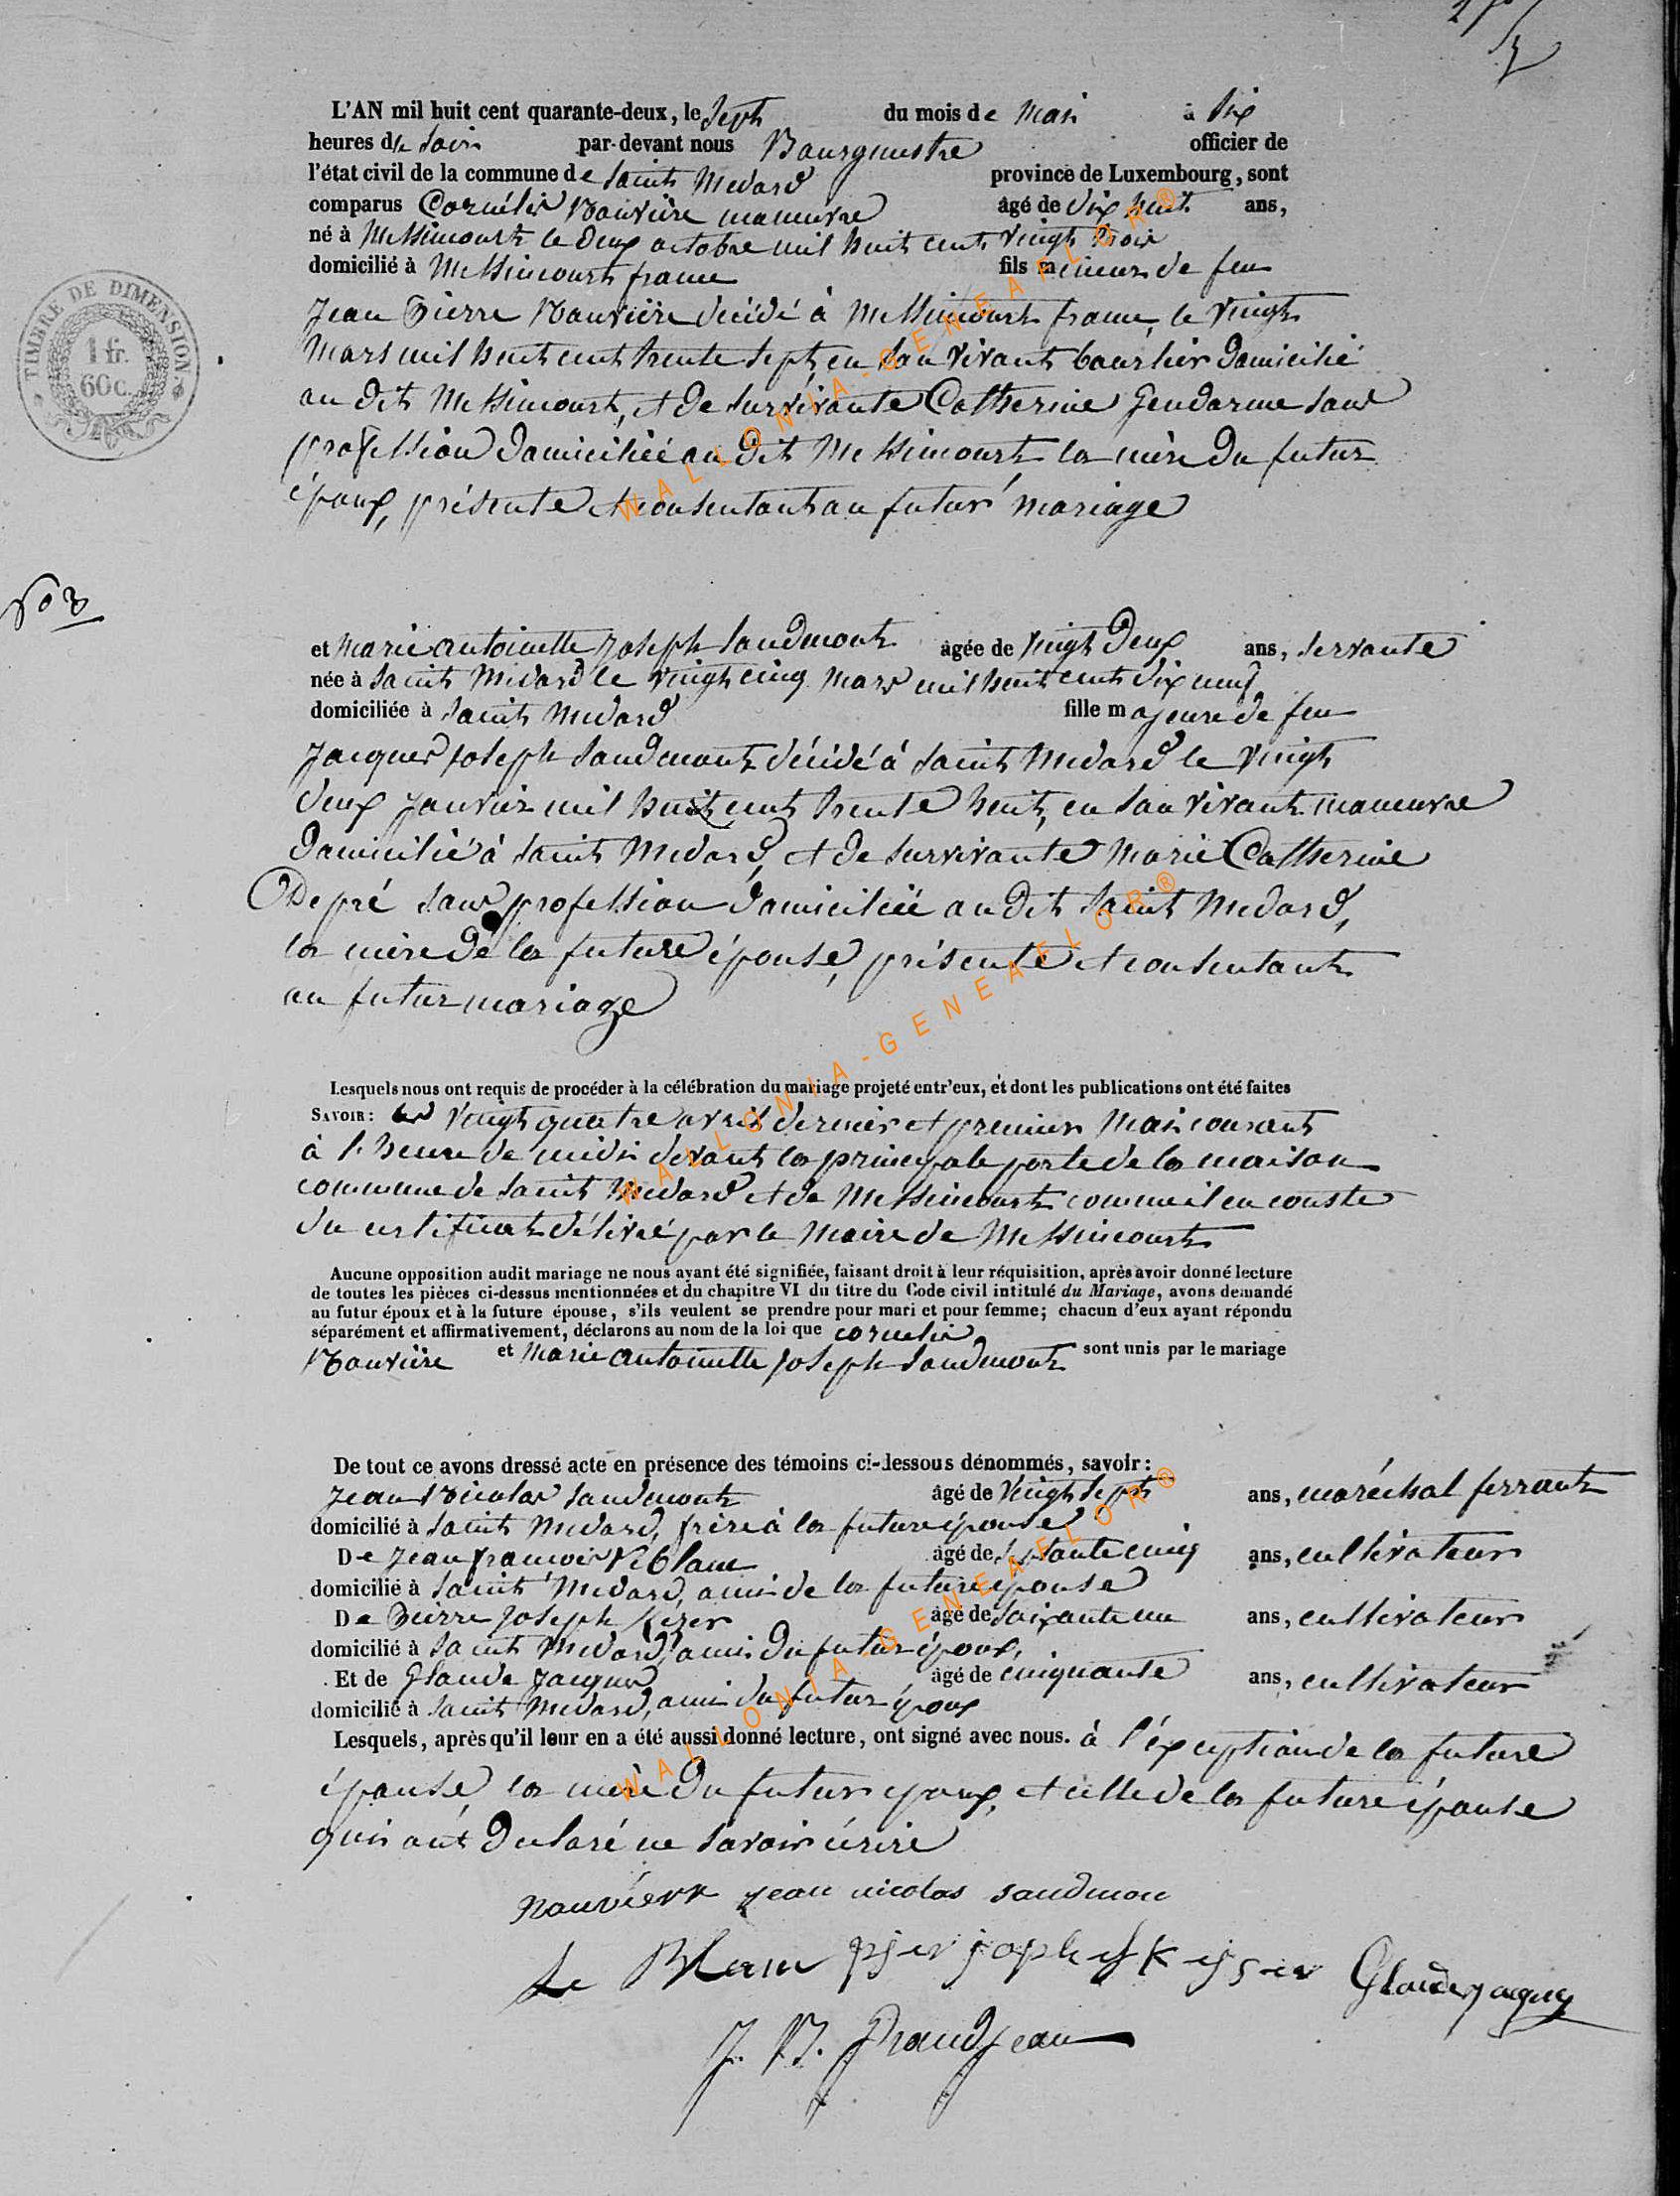 L'AN mil huit cent quarante-deux, le Sept du mois de Mai à Six
heures du Soir par-devant nous Bourgmestre officier de
l'état civil de la commune de Saint Medard province de Luxembourg, sont
comparus Cornélis Nauvière maneuvre âgé de dix huit ans,
né à Messincourt le deux octobre mil huit cent vingt trois
domicilié à Messincourt france fils mineur de feu
Jean Pierre Nauvière décédé à Messincourt france, le vingt
Mars mil huit cent trente sept, en son vivant bourlier domicilié
au dit Messincourt, et de survivante Catherine Gendarme sans
profession domiciliée au dit Messincourt la mère du futur
époux, présente et consentant au futur mariage
TIMBRE DE DIMENSION
1 fr.
60c.
No 3
et Marie antoinette Joseph Saudmont âgée de vingt deux ans, servante
née à Saint Medard le vingt cinq mars mil huit cent dix neuf
domiciliée à Saint Medard fille majeure de feu
Jacques Joseph Saudmont décédé à Saint Medard le vingt
deux Janvier mil huit cent trente huit, en son vivant maneuvre
domicilié à Saint Medard, et de survivante Marie Catherine
Depré sans profession domiciliée au dit Saint Medard,
la mère de la future épouse, présente et consentant
au futur mariage
Lesquels nous ont requis de procéder à la célébration du mariage projeté entr'eux, et dont les publications ont été faites
SAVOIR: les vingt quatre avril dernier et premier Mai courant
à l'heure de midi devant la principale porte de la maison
commune de Saint Medard et de Messincourt comme il en conste
du certificat délivré par le Maire de Messincourt
Aucune opposition audit mariage ne nous ayant été signifiée, faisant droit à leur réquisition, après avoir donné lecture
de toutes les pièces ci-dessus mentionnées et du chapitre VI du titre du Code civil intitulé du Mariage, avons demandé
au futur époux et à la future épouse, s'ils veulent se prendre pour mari et pour femme; chacun d'eux ayant répondu
séparément et affirmativement, déclarons au nom de la loi que cornelis
Nauvière et Marie antoinette Joseph Saudmont sont unis par le mariage
De tout ce avons dressé acte en présence des témoins ci-dessous dénommés, savoir:
Jean Nicolas Saudmont âgé de vingt sept ans, maréchal ferrant
domicilié à Saint Medard, frère à la future épouse
De Jean francois Leblanc âgé de septante cinq ans, cultivateur
domicilié à Saint Medard, ami de la future epouse
De Pierre Joseph Kezer âgé de soixante un ans, cultivateur
domicilié à Saint Medard, ami du futur époux,
Et de Glaude Jacques âgé de cinquante ans, cultivateur
domicilié à Saint Medard, ami du futur époux
Lesquels, après qu'il leur en a été aussi donné lecture, ont signé avec nous. à l'éxception de la future
épouse, la mère du futur epoux, et celle de la future épouse
qui ont declaré ne savoir écrire
Nauvierr jean nicolas saudmon
Le Blanc Glaude jaquey
J. N. Grandjean
WALLONIA-GENEAFLOR®
WALLONIA-GENEAFLOR®
WALLONIA-GENEAFLOR®